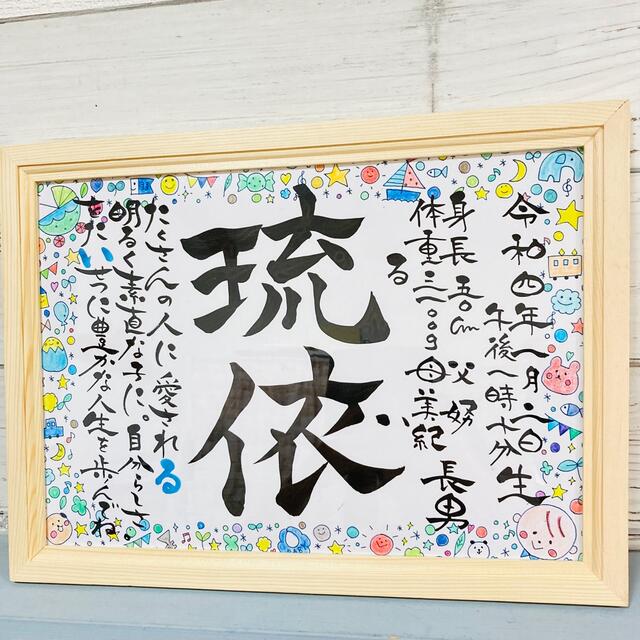 令和四年一月六日生
午後一時十分
身長五〇cm 父努
体重三一〇〇g 母美紀 長男
琉依
る
い
たくさんの人に愛される
明るく素直な子に。自分らしさ
をたいせつに豊かな人生を歩んでね。